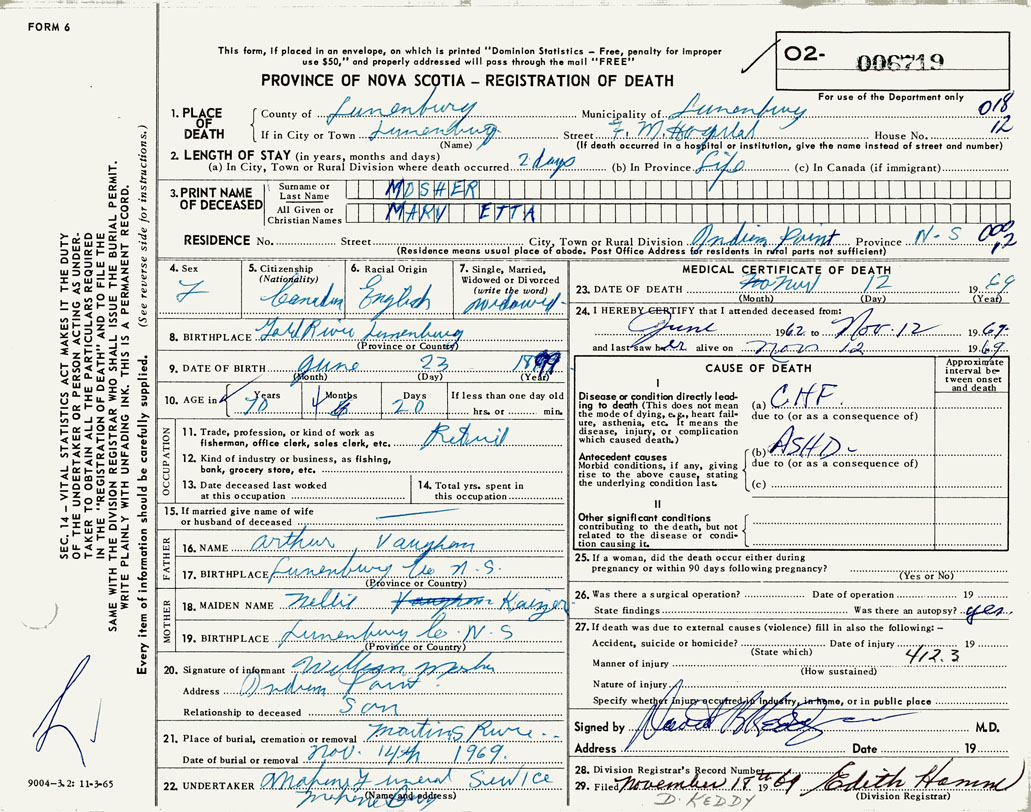 FORM 6
This form, if placed in an envelope, on which is printed "Dominion Statistics – Free, penalty for improper
use $50," and properly addressed will pass through the mail "FREE"
PROVINCE OF NOVA SCOTIA – REGISTRATION OF DEATH
02- 006719
For use of the Department only
018
12
1. PLACE OF DEATH
County of Lunenburg Municipality of Lunenburg
If in City or Town Lunenburg Street F. M. Hospital House No.
(Name) (If death occurred in a hospital or institution, give the name instead of street and number)
2. LENGTH OF STAY (in years, months and days)
(a) In City, Town or Rural Division where death occurred 2 days (b) In Province Life (c) In Canada (if immigrant)
3. PRINT NAME OF DECEASED
Surname or Last Name MOSHER
All Given or Christian Names MARY ETTA
RESIDENCE No. Street City, Town or Rural Division Indian Point Province N-S
(Residence means usual place of abode. Post Office Address for residents in rural parts not sufficient)
4. Sex
F
5. Citizenship
(Nationality)
Canadian
6. Racial Origin
English
7. Single, Married,
Widowed or Divorced
(write the word)
widowed
8. BIRTHPLACE Gold River Lunenburg
(Province or County)
9. DATE OF BIRTH June 23 1899
(Month) (Day) (Year)
10. AGE in Years Months Days If less than one day old
70 4 20 hrs. or min.
OCCUPATION
11. Trade, profession, or kind of work as
fisherman, office clerk, sales clerk, etc. Retired
12. Kind of industry or business, as fishing,
bank, grocery store, etc.
13. Date deceased last worked
at this occupation
14. Total yrs. spent in
this occupation
15. If married give name of wife
or husband of deceased
FATHER
16. NAME Arthur Vaughan
17. BIRTHPLACE Lunenburg Co N.S.
(Province or Country)
MOTHER
18. MAIDEN NAME Nellie Kaizer
19. BIRTHPLACE Lunenburg Co. N-S
(Province or Country)
20. Signature of informant William Mosher
Address Indian Point
Relationship to deceased Son
21. Place of burial, cremation or removal Martins River
Date of burial or removal Nov. 14th 1969.
22. UNDERTAKER Mahone Funeral Service
(Name and address)
Mahone Bay
MEDICAL CERTIFICATE OF DEATH
23. DATE OF DEATH Nov 12 19 69
(Month) (Day) (Year)
24. I HEREBY CERTIFY that I attended deceased from:
June 1962 to Nov. 12 1969.
and last saw her alive on Nov 12 1969.
CAUSE OF DEATH
Approximate
interval be-
tween onset
and death
I
Disease or condition directly lead-
ing to death (This does not mean
the mode of dying, e.g., heart fail-
ure, asthenia, etc. It means the
disease, injury, or complication
which caused death.)
(a) CHF.
due to (or as a consequence of)
Antecedent causes
Morbid conditions, if any, giving
rise to the above cause, stating
the underlying condition last.
(b) ASHD-
due to (or as a consequence of)
(c)
II
Other significant conditions
contributing to the death, but not
related to the disease or condi-
tion causing it.
25. If a woman, did the death occur either during
pregnancy or within 90 days following pregnancy?
(Yes or No)
26. Was there a surgical operation? Date of operation 19
State findings Was there an autopsy? yes.
27. If death was due to external causes (violence) fill in also the following: –
Accident, suicide or homicide? Date of injury 19
(State which) 412.3
Manner of injury
(How sustained)
Nature of injury
Specify whether Injury occurred in industry, in home, or in public place
Signed by David B Keddy M.D.
Address Date 19
28. Division Registrar's Record Number
29. Filed November 18th 1969
(Division Registrar)
D. KEDDY
SEC. 14 – VITAL STATISTICS ACT MAKES IT THE DUTY
OF THE UNDERTAKER OR PERSON ACTING AS UNDER-
TAKER TO OBTAIN ALL THE PARTICULARS REQUIRED
IN THE "REGISTRATION OF DEATH" AND TO FILE THE
SAME WITH THE DIVISION REGISTRAR WHO SHALL ISSUE THE BURIAL PERMIT.
WRITE PLAINLY WITH UNFADING INK. THIS IS A PERMANENT RECORD.
Every item of information should be carefully supplied. (See reverse side for instructions.)
9004-3.2: 11-3-65